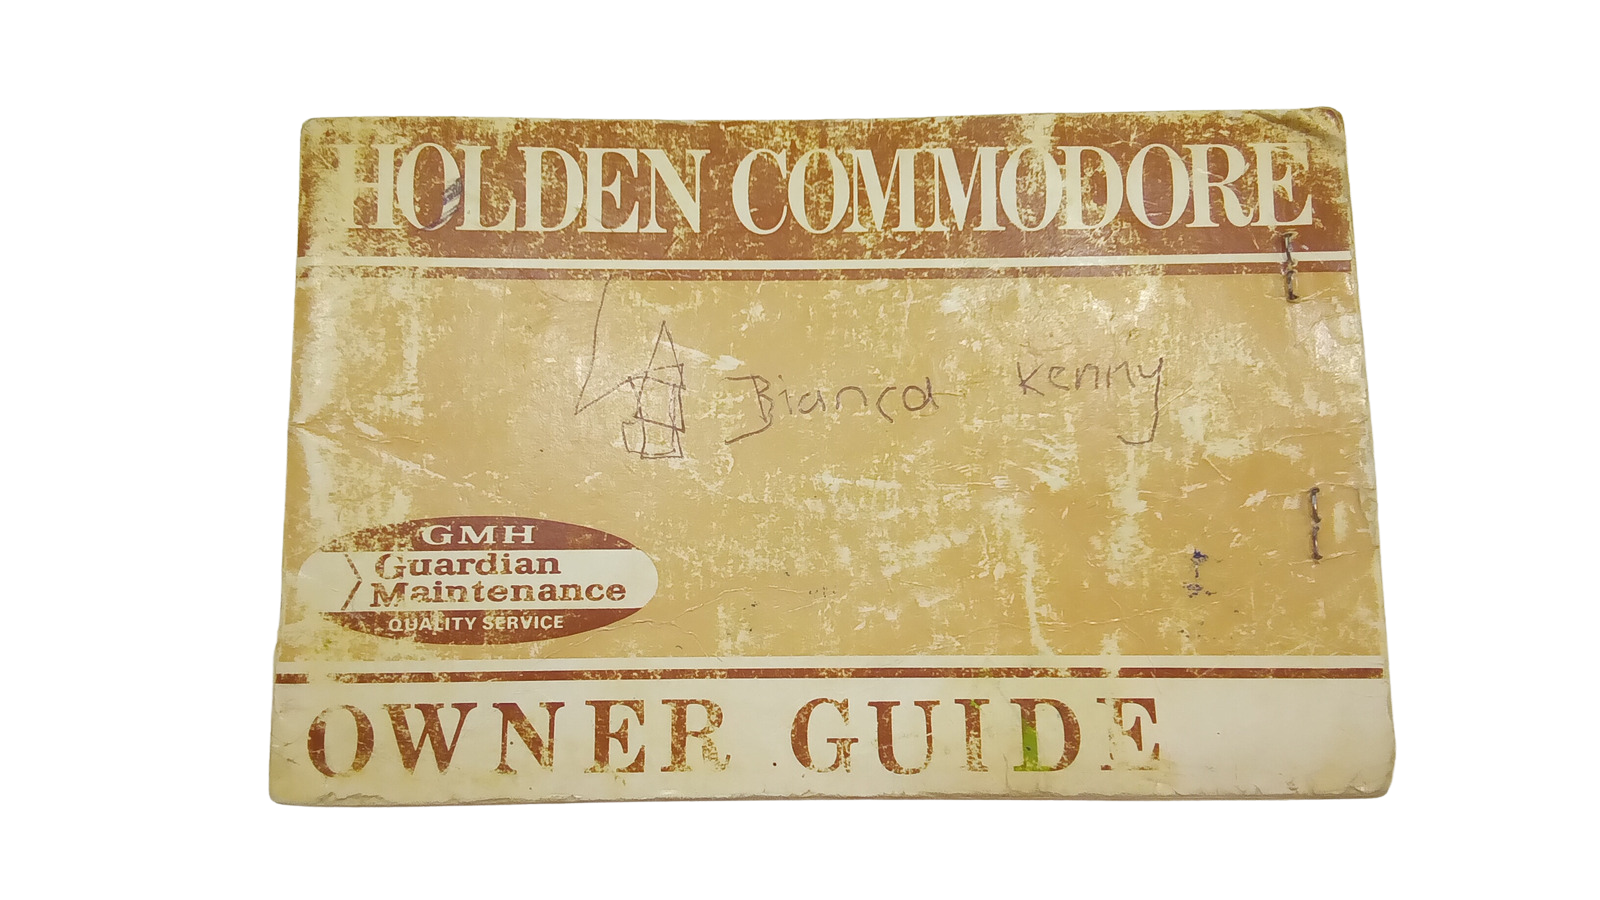 HOLDEN COMMODORE
Bianca Kenny
GMH
Guardian
Maintenance
QUALITY SERVICE
OWNER GUIDE